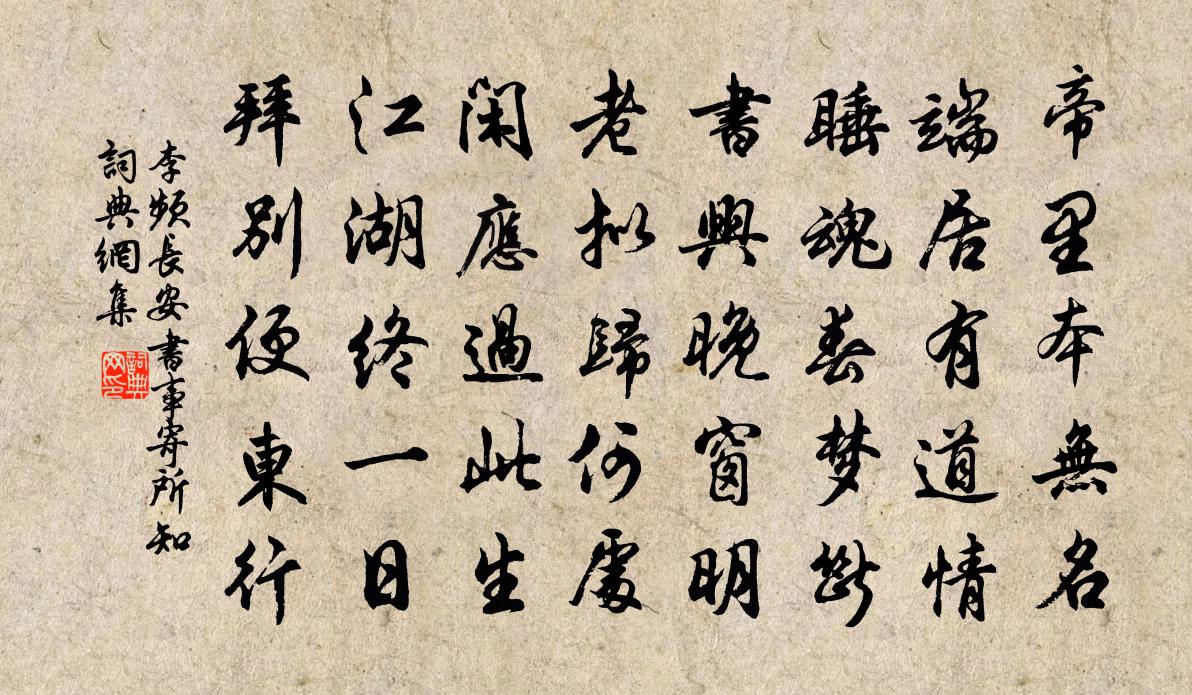 帝里本無名
端居有道情
睡魂春夢斷
書興晚窗明
老擬歸何處
閑應過此生
江湖終一日
拜別便東行
李頻長安書事寄所知
詞典網集
詞典网印